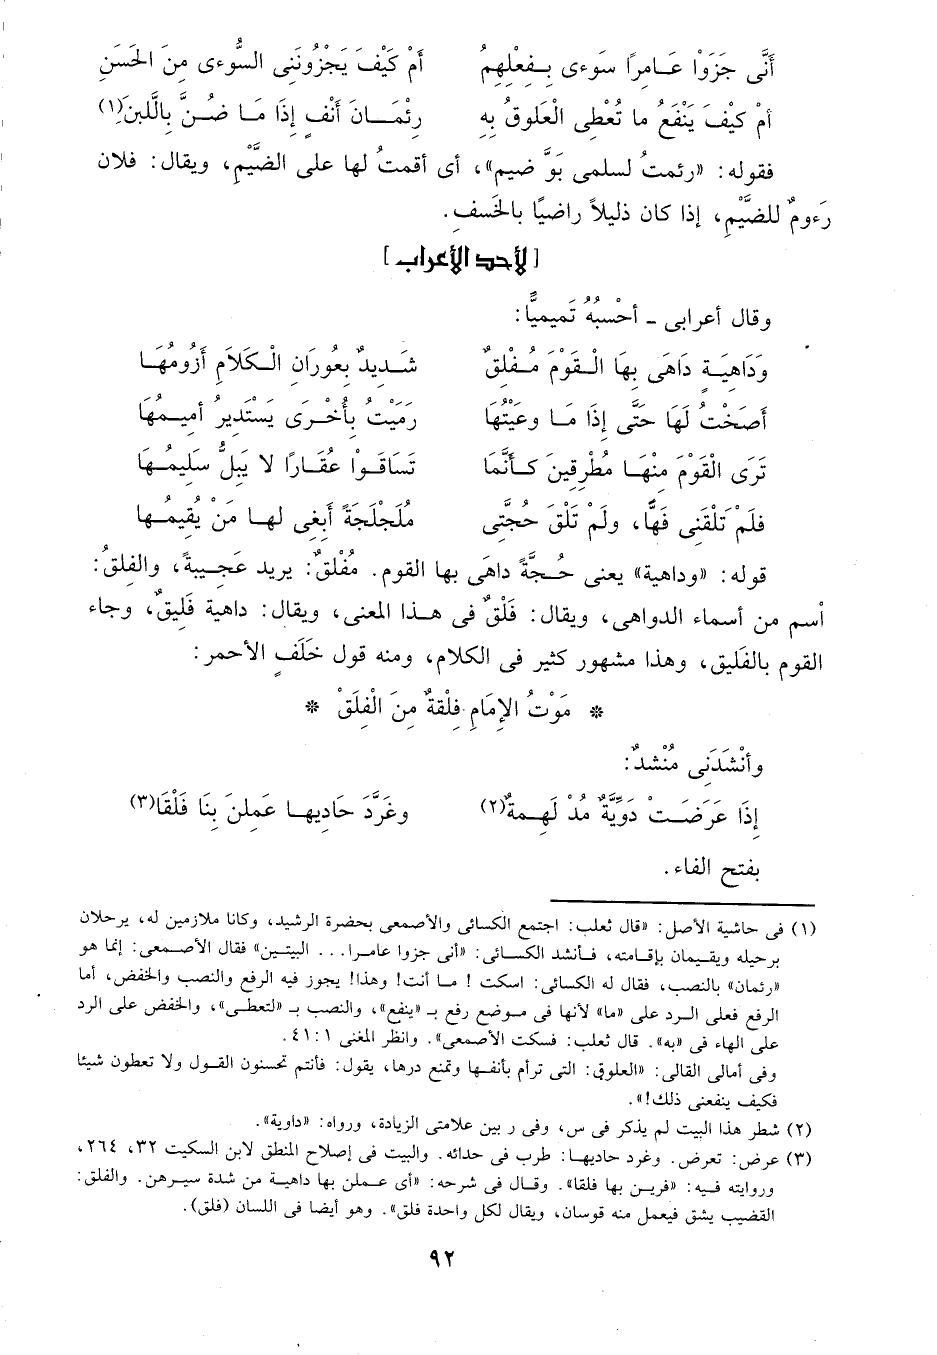 أَنَّى جَزَوْا عَامِرًا سَوءى بِفِعْلِهِمُ أَمْ كَيْفَ يَجْزُونَنِى السُّوءى مِنَ الحَسَنِ
أمْ كيْفَ يَنْفَعُ ما تُعْطِى الْعَلوقُ بِهِ رِئْمَانَ أَنْفٍ إِذَا مَا ضُنَّ بِاللَّبَنِ(١)
فقوله: «رئمتُ لسلمى بَوَّ ضيم»، أى أقمتُ لها على الضَّيْمِ، ويقال: فلان
رَءومٌ للضَّيْمِ، إذا كان ذليلاً راضيًا بالخَسفِ.
[لأحد الأعراب]
وقال أعرابى ــ أحْسِبُهُ تَمِيميًّا:
وَدَاهِيَةٍ دَاهَى بِهَا الْقَوْمَ مُفْلِقٌ شَدِيدٌ بِعُورَانِ الْكَلاَمِ أَزُومُهَا
أَصَخْتُ لَهَا حَتَّى إِذَا مَا وعَيْتُهَا رَمَيْتُ بِأُخْرَى يَسْتَدِيرُ أميمُهَا
تَرَى الْقَوْمَ مِنْهَا مُطْرِقينَ كَأَنَّمَا تَسَاقَوْا عُقَارًا لا يَبِلُّ سَلِيمُهَا
فلَمْ تَلْقَنِى فَهًّا، ولَمْ تَلْقَ حُجَّتِى مُلَجْلَجَةً أَبْغِى لهَا مَنْ يُقيمُهَا
قوله: «وداهية» يعنى حُجةً داهَى بها القوم. مُفْلِقٌ: يريد عَجِيبةً، والفلقُ:
أسم من أسماء الدواهى، ويقال: فَلْقٌ فى هذا المعنى، ويقال: داهية فَلِيقٌ، وجاء
القوم بالفَلِيق، وهذا مشهور كثير فى الكلام، ومنه قول خَلَفٍ الأحمر:
* مَوْتُ الإمَامِ فِلْقةٌ مِنَ الْفِلَقْ *
وأنْشَدَنِى مُنْشدٌ:
إِذَا عَرَضَتْ دَوِّيَّةٌ مُدْ لَهِمةٌ(٢) وغَرَّدَ حَادِيهَا عَمِلنَ بِنَا فَلْقَا(٣)
بفتح الفاء.
(١) فى حاشية الأصل: «قال ثعلب: اجتمع الكسائى والأصمعى بحضرة الرشيد، وكانا ملازمين له، يرحلان
برحيله ويقيمان بإقامته، فأنشد الكسائى: «أنى جزوا عامرا... البيتين» فقال الأصمعى: إنما هو
«رئمان» بالنصب، فقال له الكسائى: اسكت! ما أنت! وهذا! يجوز فيه الرفع والنصب والخفض، أما
الرفع فعلى الرد على «ما» لأنها فى موضع رفع بـ «ينفع»، والنصب بـ «لتعطى»، والخفض على الرد
على الهاء فى «به». قال ثعلب: فسكت الأصمعى». وانظر المغنى ١ : ٤١.
وفى أمالى القالى: «العلوق: التى ترأم بأنفها وتمنع درها، يقول: فأنتم تحسنون القول ولا تعطون شيئا
فكيف ينفعنى ذلك!».
(٢) شطر هذا البيت لم يذكر فى س، وفى ر بين علامتى الزيادة، ورواه: «داوية».
(٣) عرض: تعرض. وغرد حاديها: طرب فى حدائه. والبيت فى إصلاح المنطق لابن السكيت ٣٢، ٢٦٤،
وروايته فيه: «فرين بها فلقا». وقال فى شرحه: «أى عملن بها داهية من شدة سيرهن. والفلق:
القضيب يشق فيعمل منه قوسان، ويقال لكل واحدة فلق». وهو أيضا فى اللسان (فلق).
٩٢